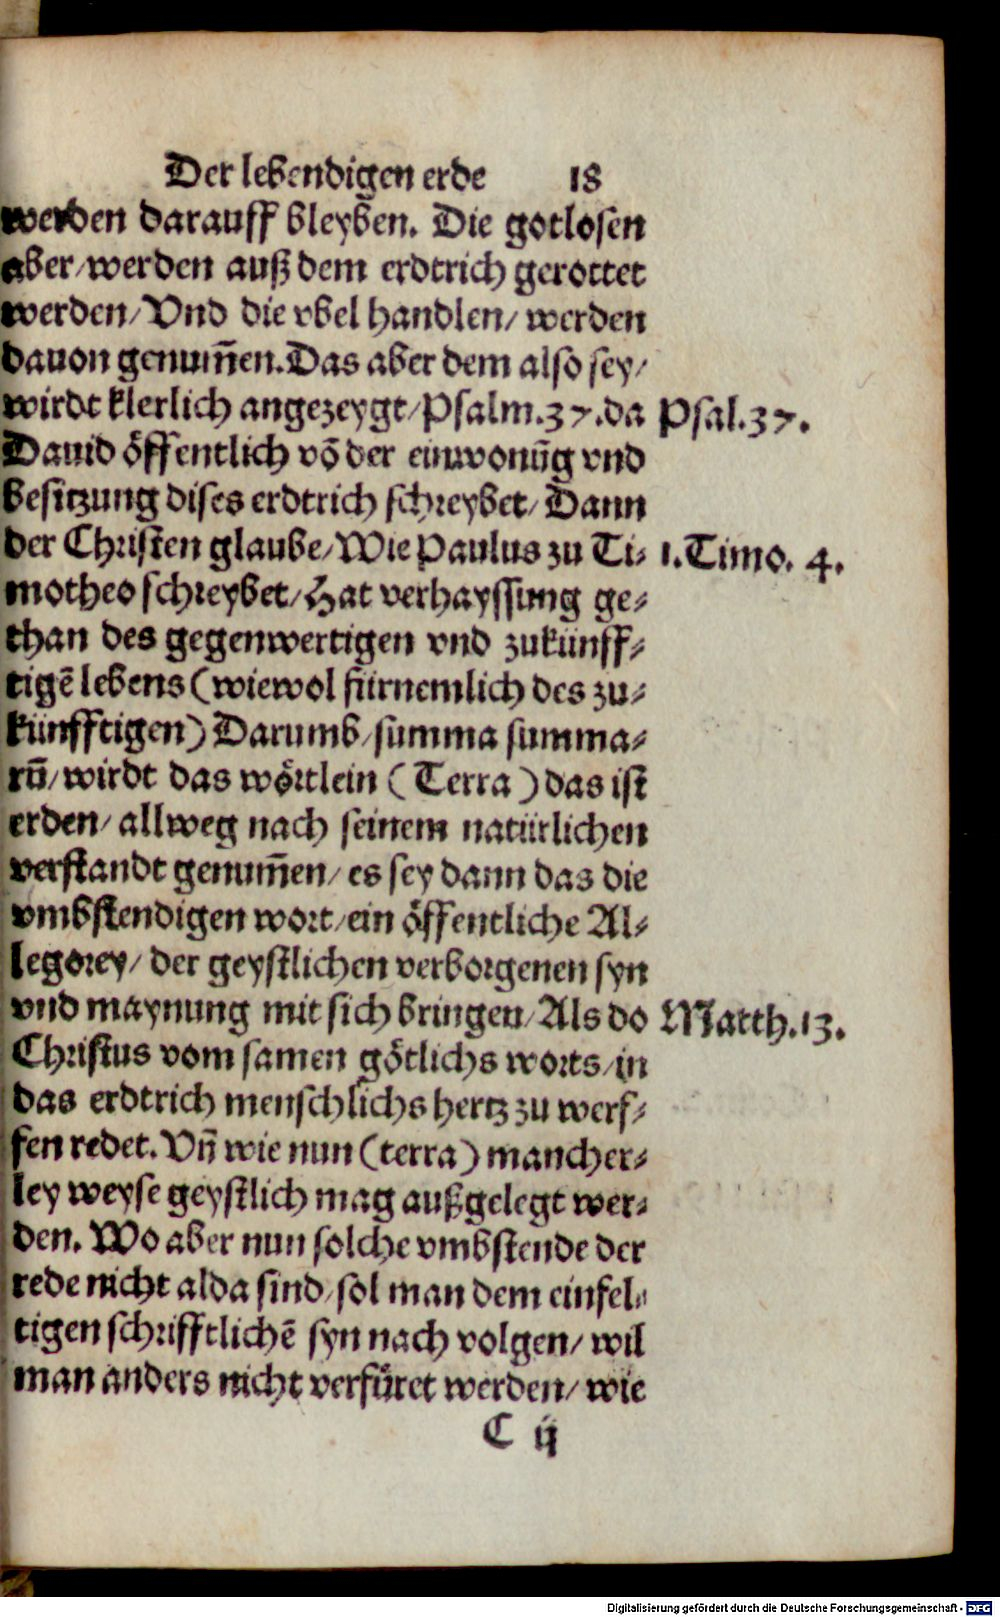 Der lebendigen erde 18
werden darauff bleyben. Die gotlosen
aber/werden auß dem erdtrich gerottet
werden/Vnd die vbel handlen/werden
dauon genum̃en.Das aber dem also sey/
wirdt klerlich angezeygt/Psalm.37.da Psal.37.
Dauid öffentlich võ der einwonũg vnd
besitzung dises erdtrich schreybet/Dann
der Christen glaube/Wie Paulus zu Ti⸗ 1.Timo. 4.
motheo schreybet/Hat verhayssung ge⸗
than des gegenwertigen vnd zukünff⸗
tigẽ lebens (wiewol fürnemlich des zu⸗
künfftigen) Darumb/summa summa⸗
rũ/wirdt das wörtlein (Terra) das ist
erden/allweg nach seinem natürlichen
verstandt genum̃en/es sey dann das die
vmbstendigen wort/ein öffentliche Al⸗
legorey/der geystlichen verborgenen syn
vnd maynung mit sich bringen/Als do Matth.13.
Christus vom samen götlichs worts/in
das erdtrich menschlichs hertz zu werf⸗
fen redet. Vñ wie nun (terra) mancher⸗
ley weyse geystlich mag außgelegt wer⸗
den. Wo aber nun solche vmbstende der
rede nicht alda sind/sol man dem einfel⸗
tigen schrifftlichẽ syn nach volgen/wil
man anders nicht verfüret werden/wie
C ij
Digitalisierung gefördert durch die Deutsche Forschungsgemeinschaft - DFG